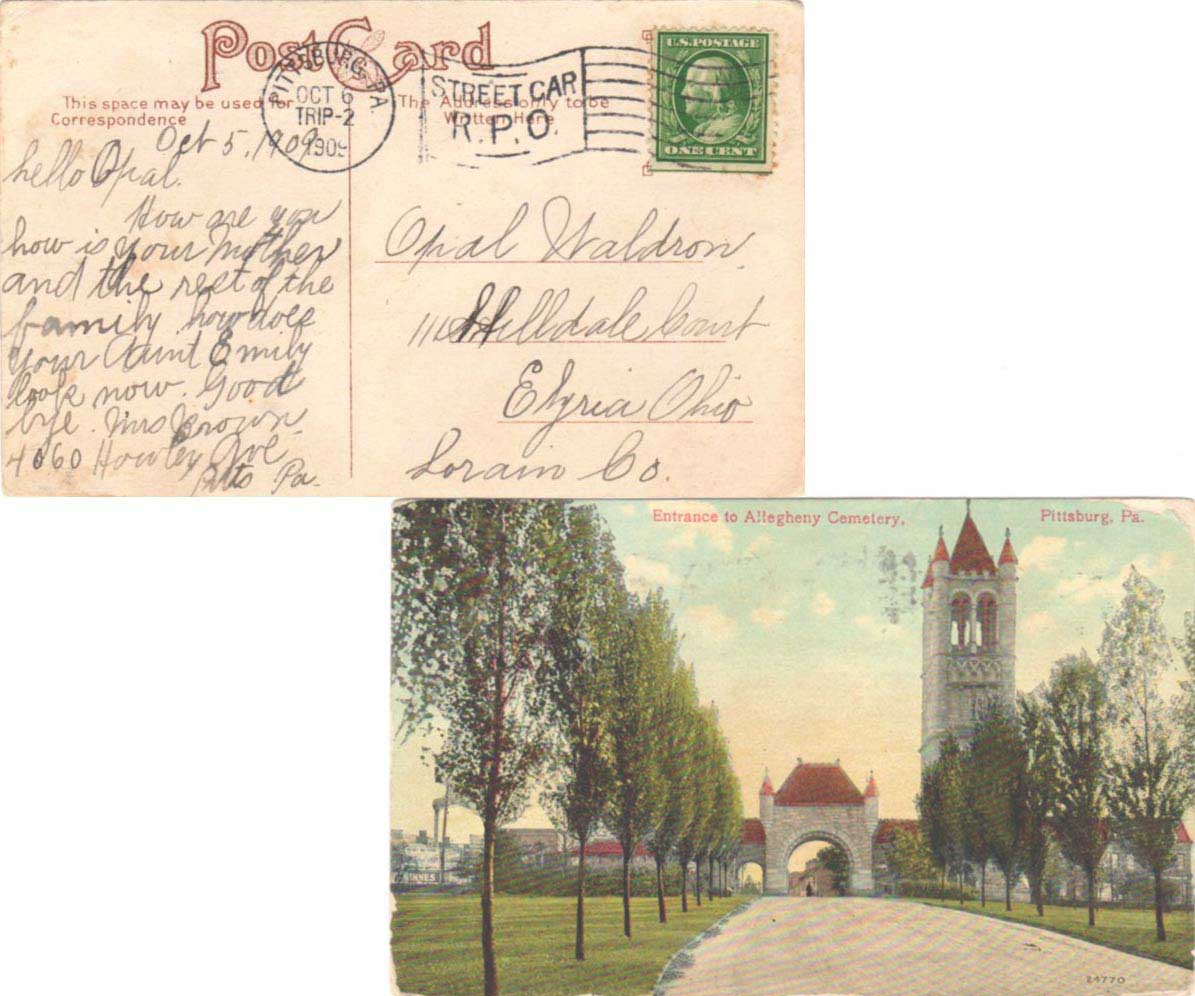 Post Card
This space may be used for
Correspondence
The Address only to be
Written Here
PITTSBURG, PA.
OCT 6
TRIP-2
1909
STREET CAR
R.P.O.
U.S. POSTAGE
ONE CENT
Oct 5, 1909
hello Opal.
How are you
how is your Mother
and the rest of the
family how does
your Aunt Emily
look now. Good
bye. Mrs Brown
4060 Howley Ave
Pitts Pa.
Opal Waldron
Hilldale Court
Elyria Ohio
Lorain Co.
Entrance to Allegheny Cemetery,
Pittsburg, Pa.
24770